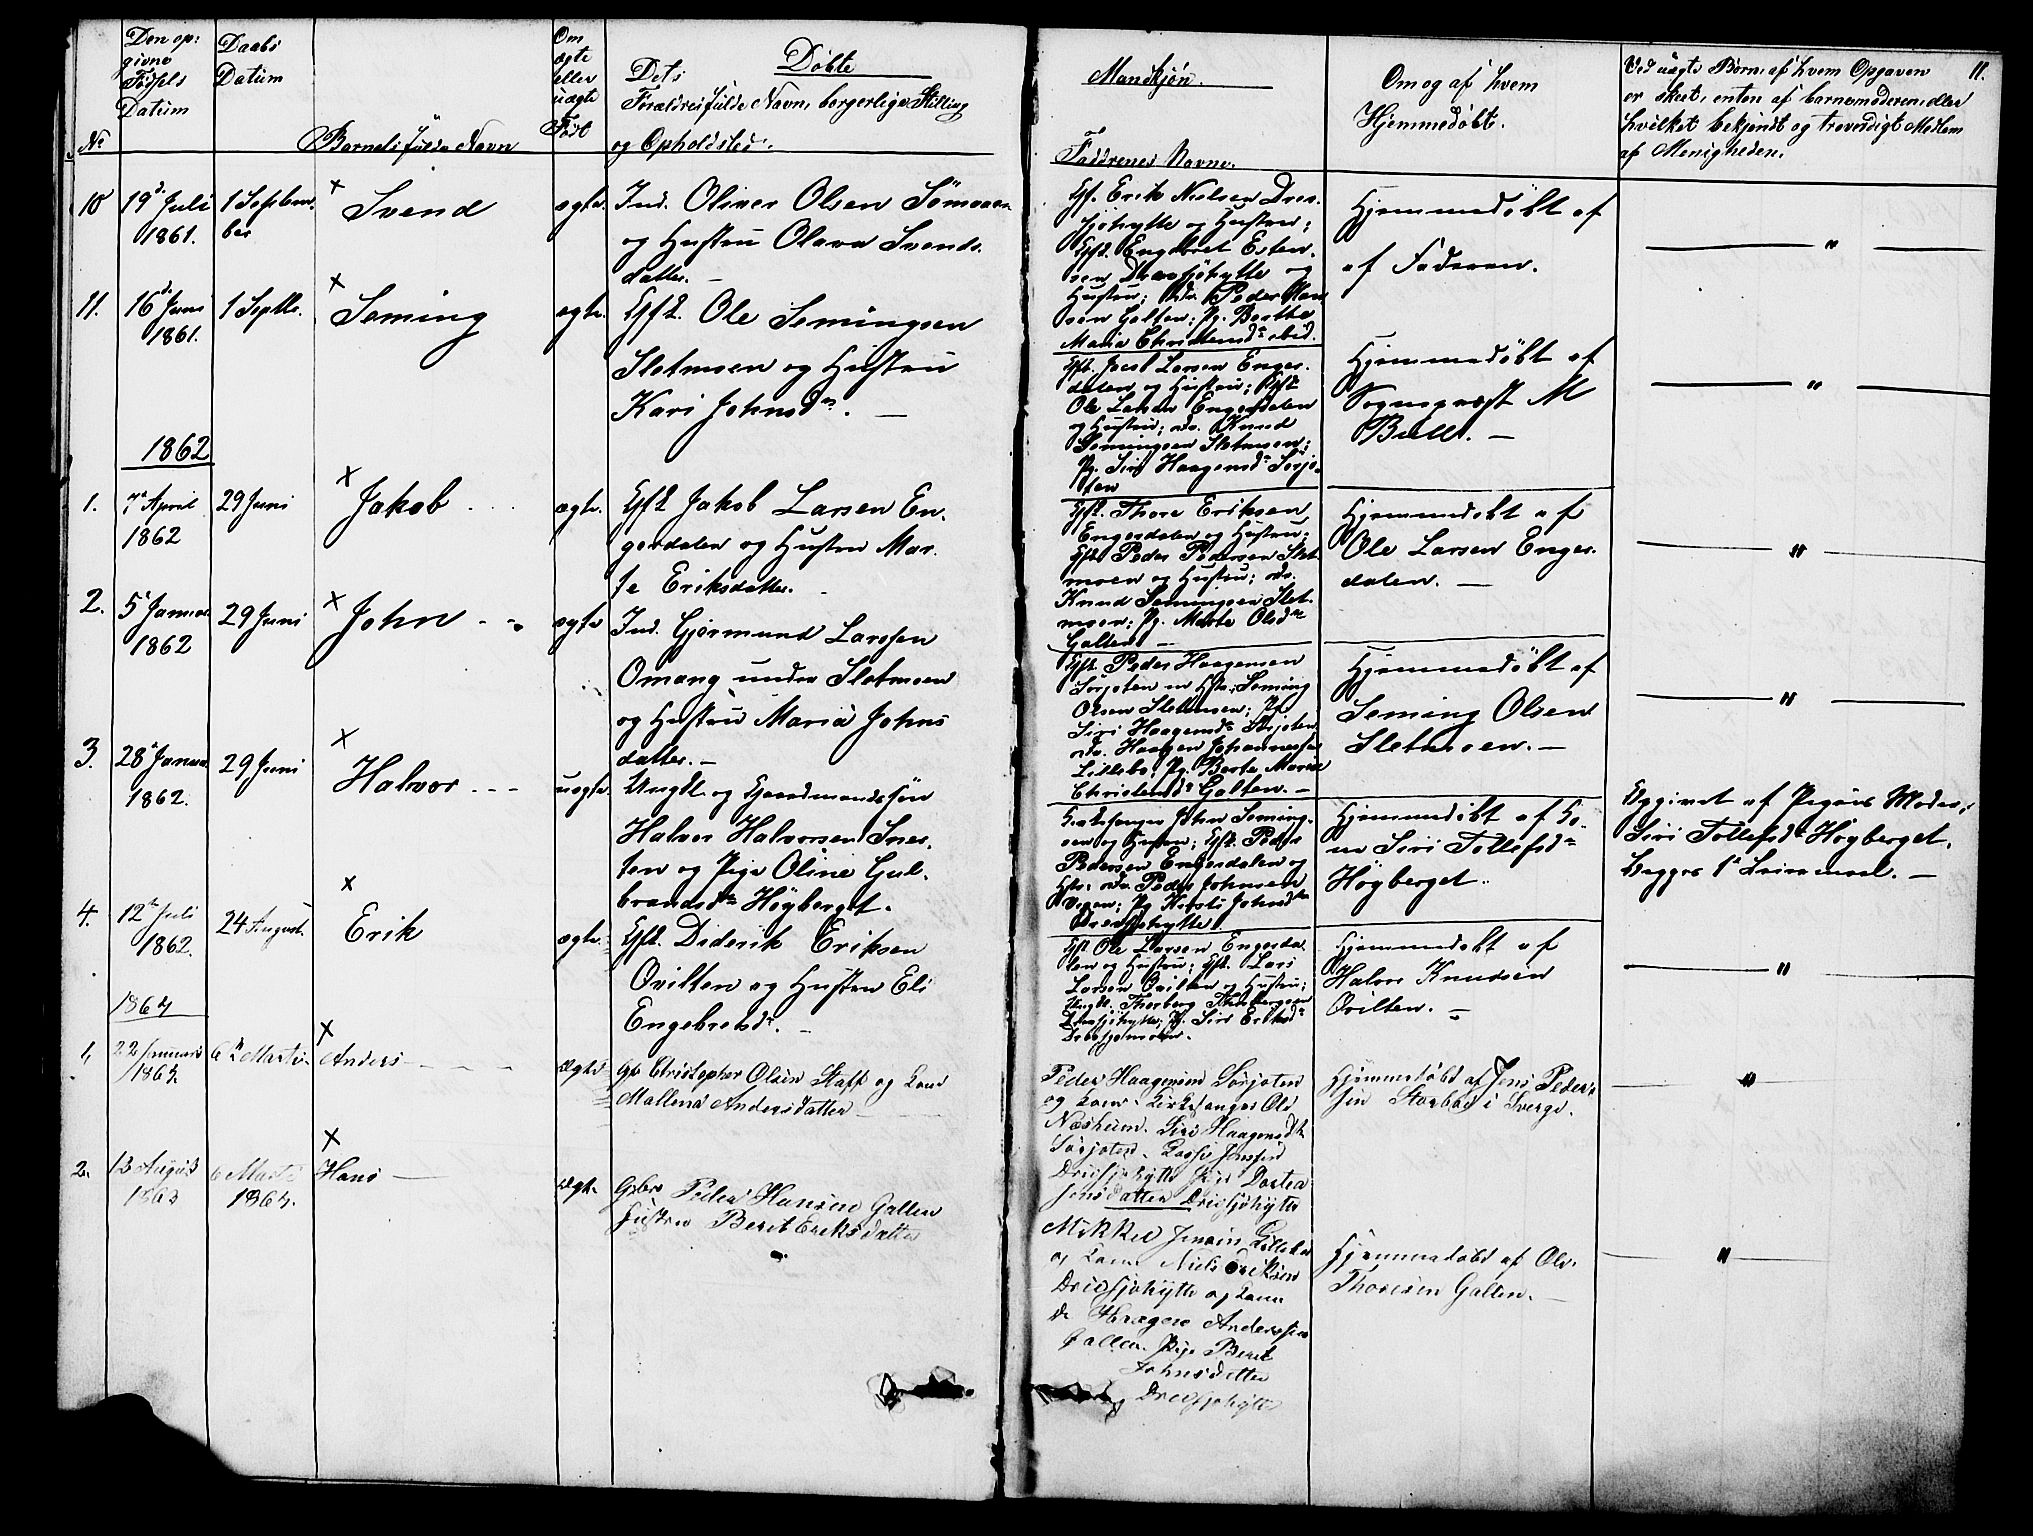 Døbte
Mandkjøn.
11.
No
Den op-
givne
Fødsels
Datum
Daabs
Datum
Barnets fulde Navn
Om
ægte
eller
uægte
Født
Dets
Forældres fulde Navn, borgerlige Stilling
og Opholdsted.
Faddrenes Navne.
Om og af hvem
Hjemmedøbt.
Ved uægte Børn, af hvem Opgaven
er skeet, enten af barnemoderen, eller
hvilket bekjendt og troværdigt Medlem
af Menigheden.
10
19d Juli
1861.
1 Septem-
ber
Svend
ægte.
Ind. Oliver Olsen Sömaaen
og Hustru Olava Svends-
datter. —
Gf. Erik Nielsen Drev-
sjöhytte og Hustru;
Gft. Engebret Esten-
sen Drevsjöhytte og
Hustru; Peder Han
sen Galten; Pg. Berthe
Maria Christensdr ibid.
Hjemmedöbt af
af Faderen.
— " —
11.
16d Juni
1861.
1 Septbr.
Seming
ægte.
Gft. Ole Semingsen
Sletmoen og Hustru
Kari Johnsdr. —
Larsen Enger-
dalen og Hustru; Gft
Ole Larsen Engerdalen
og Hustru; Knud
Semingsen Sletmoen;
Pg. Siri Haagensdr Sorjo-
ten
Hjemmedöbt af
Sognepræst M
Bull. —
— " —
1862
1.
7d April
1862
29 Juni
Jakob
ægte.
Gft Jakob Larsen En-
gerdalen og Hustru Mar-
te Eriksdatter.
Gft. Thore Eriksen
Engerdalen og Hustru;
Gft Peder Pedersen Slet
moen og Hustru;
Knud Semingsen Slet-
moen; Pg. Marte Olsdr
Galten —
Hjemmedöbt af
Ole Larsen Enger-
dalen. —
— " —
2.
5d Januar
1862
29 Juni
John
ægte
Ind. Gjörmund Larssen
Omang under Sletmoen
og Hustru Maria Johns
datter. —
Gft. Peder Haagensen
Sorjoten m Hst.; Seming
Olsen Sletmoen; Pg
Siri Haagensdr Sorjoten
Haagen Johannessen
Lillebo; Pg. Berte Maria
Christensdr Galten. —
Hjemmedöbt af
Seming Olsen
Sletmoen. —
— " —
3.
28d Januar
1862.
29 Juni
Halvor
uægte.
Ungkl. og Gaardmandssøn
Halvor Halvorsen Sner-
ten og Pige Oline Gul-
brandsdr Höyberget.
Kirkesanger John Seming-
sen og Hustru; Gft. Peder
Pedersen Engerdalen og
Hst; Peder Johnsen
Vigen; Pg Kirsti Johnsdr
Drevsjöhytte.
Hjemmedöbt af Ko-
ne Siri Tollefsdr
Höyberget.
Opgivet af Pigens Moder,
Siri Tollefsdr Höyberget.
Begges 1d Leiermaal. —
4.
12te Juli
1862.
24 August.
Erik
ægte.
Gft. Diderik Eriksen
Qvilten og Hustru Eli
Engebretsdr. —
Gft Ole Larsen Engerda-
len og Hustru; Gft. Lars
Larsen Qvilten og Hustru;
Ungkl. Thorberg Thorbergsen
Drevsjöhytte; Pg. Siri Eriksdr
Drevsjomoen.
Hjemmedöbt af
Halvor Knudsen
Qvilten. —
— " —
1864
1,
22 Januari
1864.
6te Marts.
Anders
ægte
Gb Christopher Olsen Staff og Kone
Mallena Andersdatter
Peder Haagensen Sorjoten
og Kone. Kirkesanger Ole
Næsheim. Siri Haagensdtr
Sorjoten. Jensen
Drevsjohytte Dortea
Jensdatter Drevsjöhytte
Hjemmedöbt af Jens Peder-
sen Storbo i Sverge.
— " —
2.
13 August
1863
6 Marts
1864.
Hans
ægte
Gbr Peder Hansen Galten
Hustru Beret Eriksdatter
Mikkel Jensen Lillebo
og Kone Niels Eriksen
Drevsjohytte og Kone
Haagen Andersen
Galten. Pige Beret
Johnsdatter
Drevsjohytte
Hjemmedøbt af Ole
Thoresen Galten. —
— " —